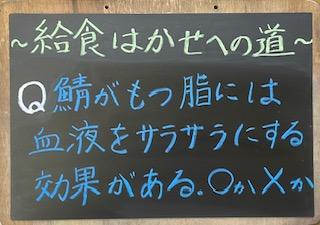 ~給食はかせへの道~
Q鯖がもつ脂には
血液をサラサラにする
効果がある。○か×か